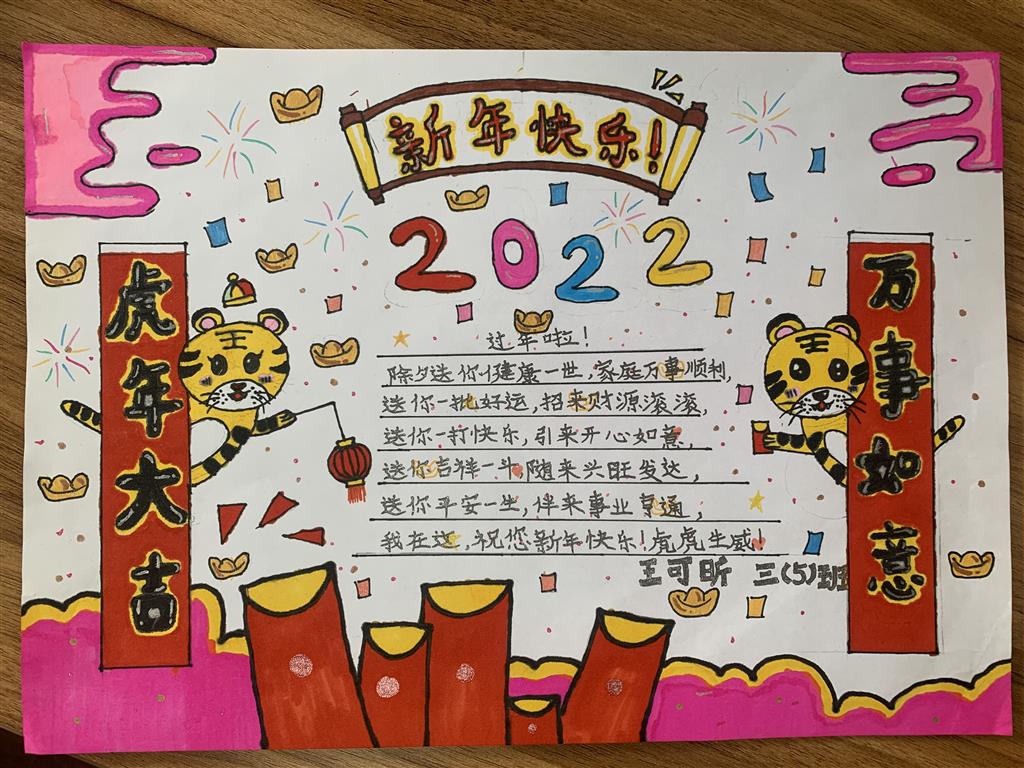 新年快乐!
2022
虎年大吉
万事如意
王
王
过年啦!
除夕送你健康一世,家庭万事顺利,
送你一批好运,招来财源滚滚,
送你一打快乐,引来开心如意,
送你吉祥一斗随来兴旺发达,
送你平安一生,伴来事业亨通,
我在这,祝您新年快乐!虎虎生威!
王可昕 三(5)班